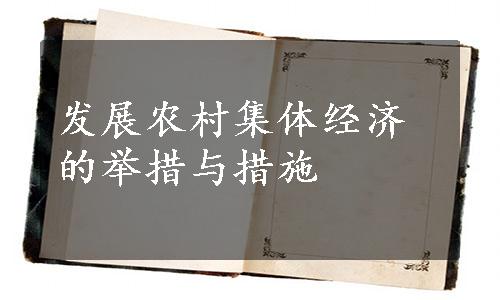 发展农村集体经济
的举措与措施